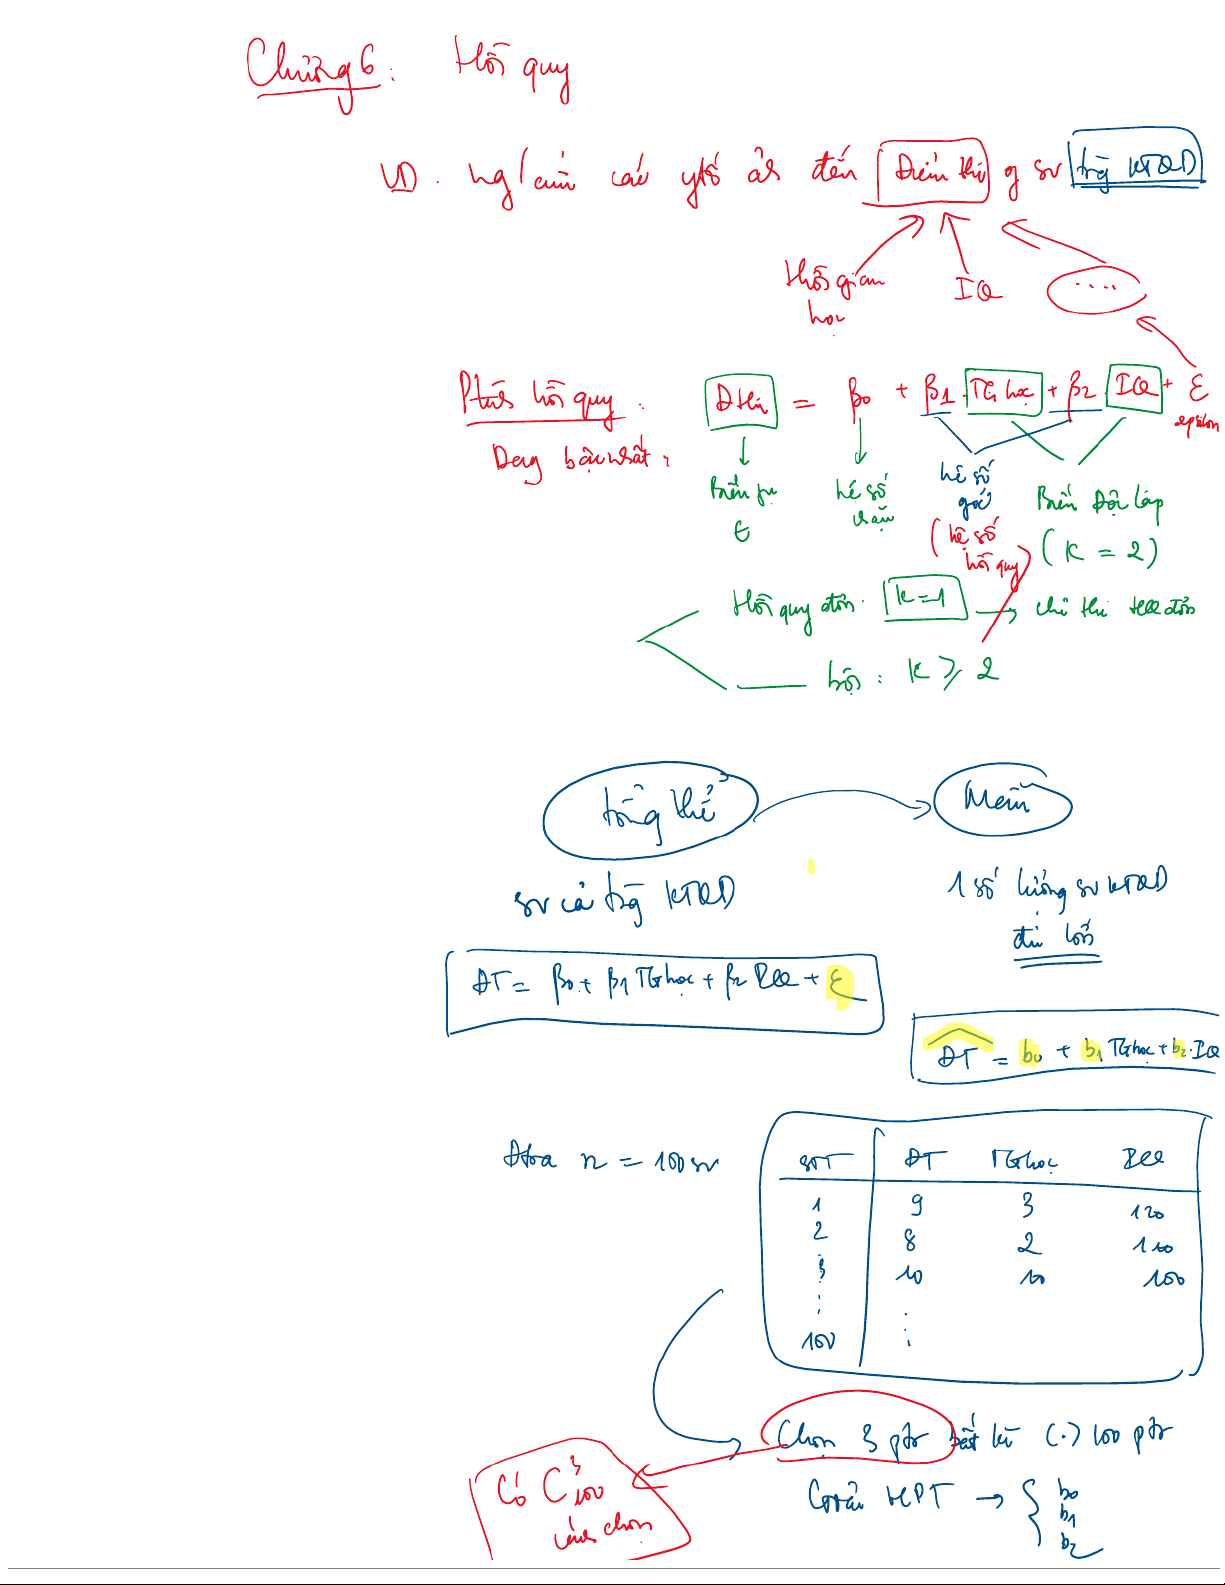 Chương 6: Hồi quy
VD. ng/cứu các ytố ảh đến Điểm thi of sv trg KTQD
Thời gian học
IQ
....
Pt hồi quy: Đthi = β0 + β1.TG học + β2.IQ + ε
epsilon
Dạng bậc nhất:
Biến pụ t
hệ số chặn
hệ số góc
(hệ số hồi quy)
Biến độc lập
(K = 2)
Hồi quy đơn: K=1 → chỉ thi HQ đơn
bội: K ≥ 2
Tổng thể
Mẫu
sv cả trg KTQD
1 số lượng sv KTQD
đủ lớn
ĐT = β0 + β1 TG học + β2 IQ + ε
ĐT = b0 + b1 TG học + b2.IQ
Đtra n = 100 sv
STT ĐT TG học IQ
1 9 3 120
2 8 2 110
3 10 10 100
⋮ ⋮
100 ⋮
Chọn 3 ptr bất kì (.) 100 ptr
Có C³100
cách chọn
Giải HPT → { b0
b1
b2